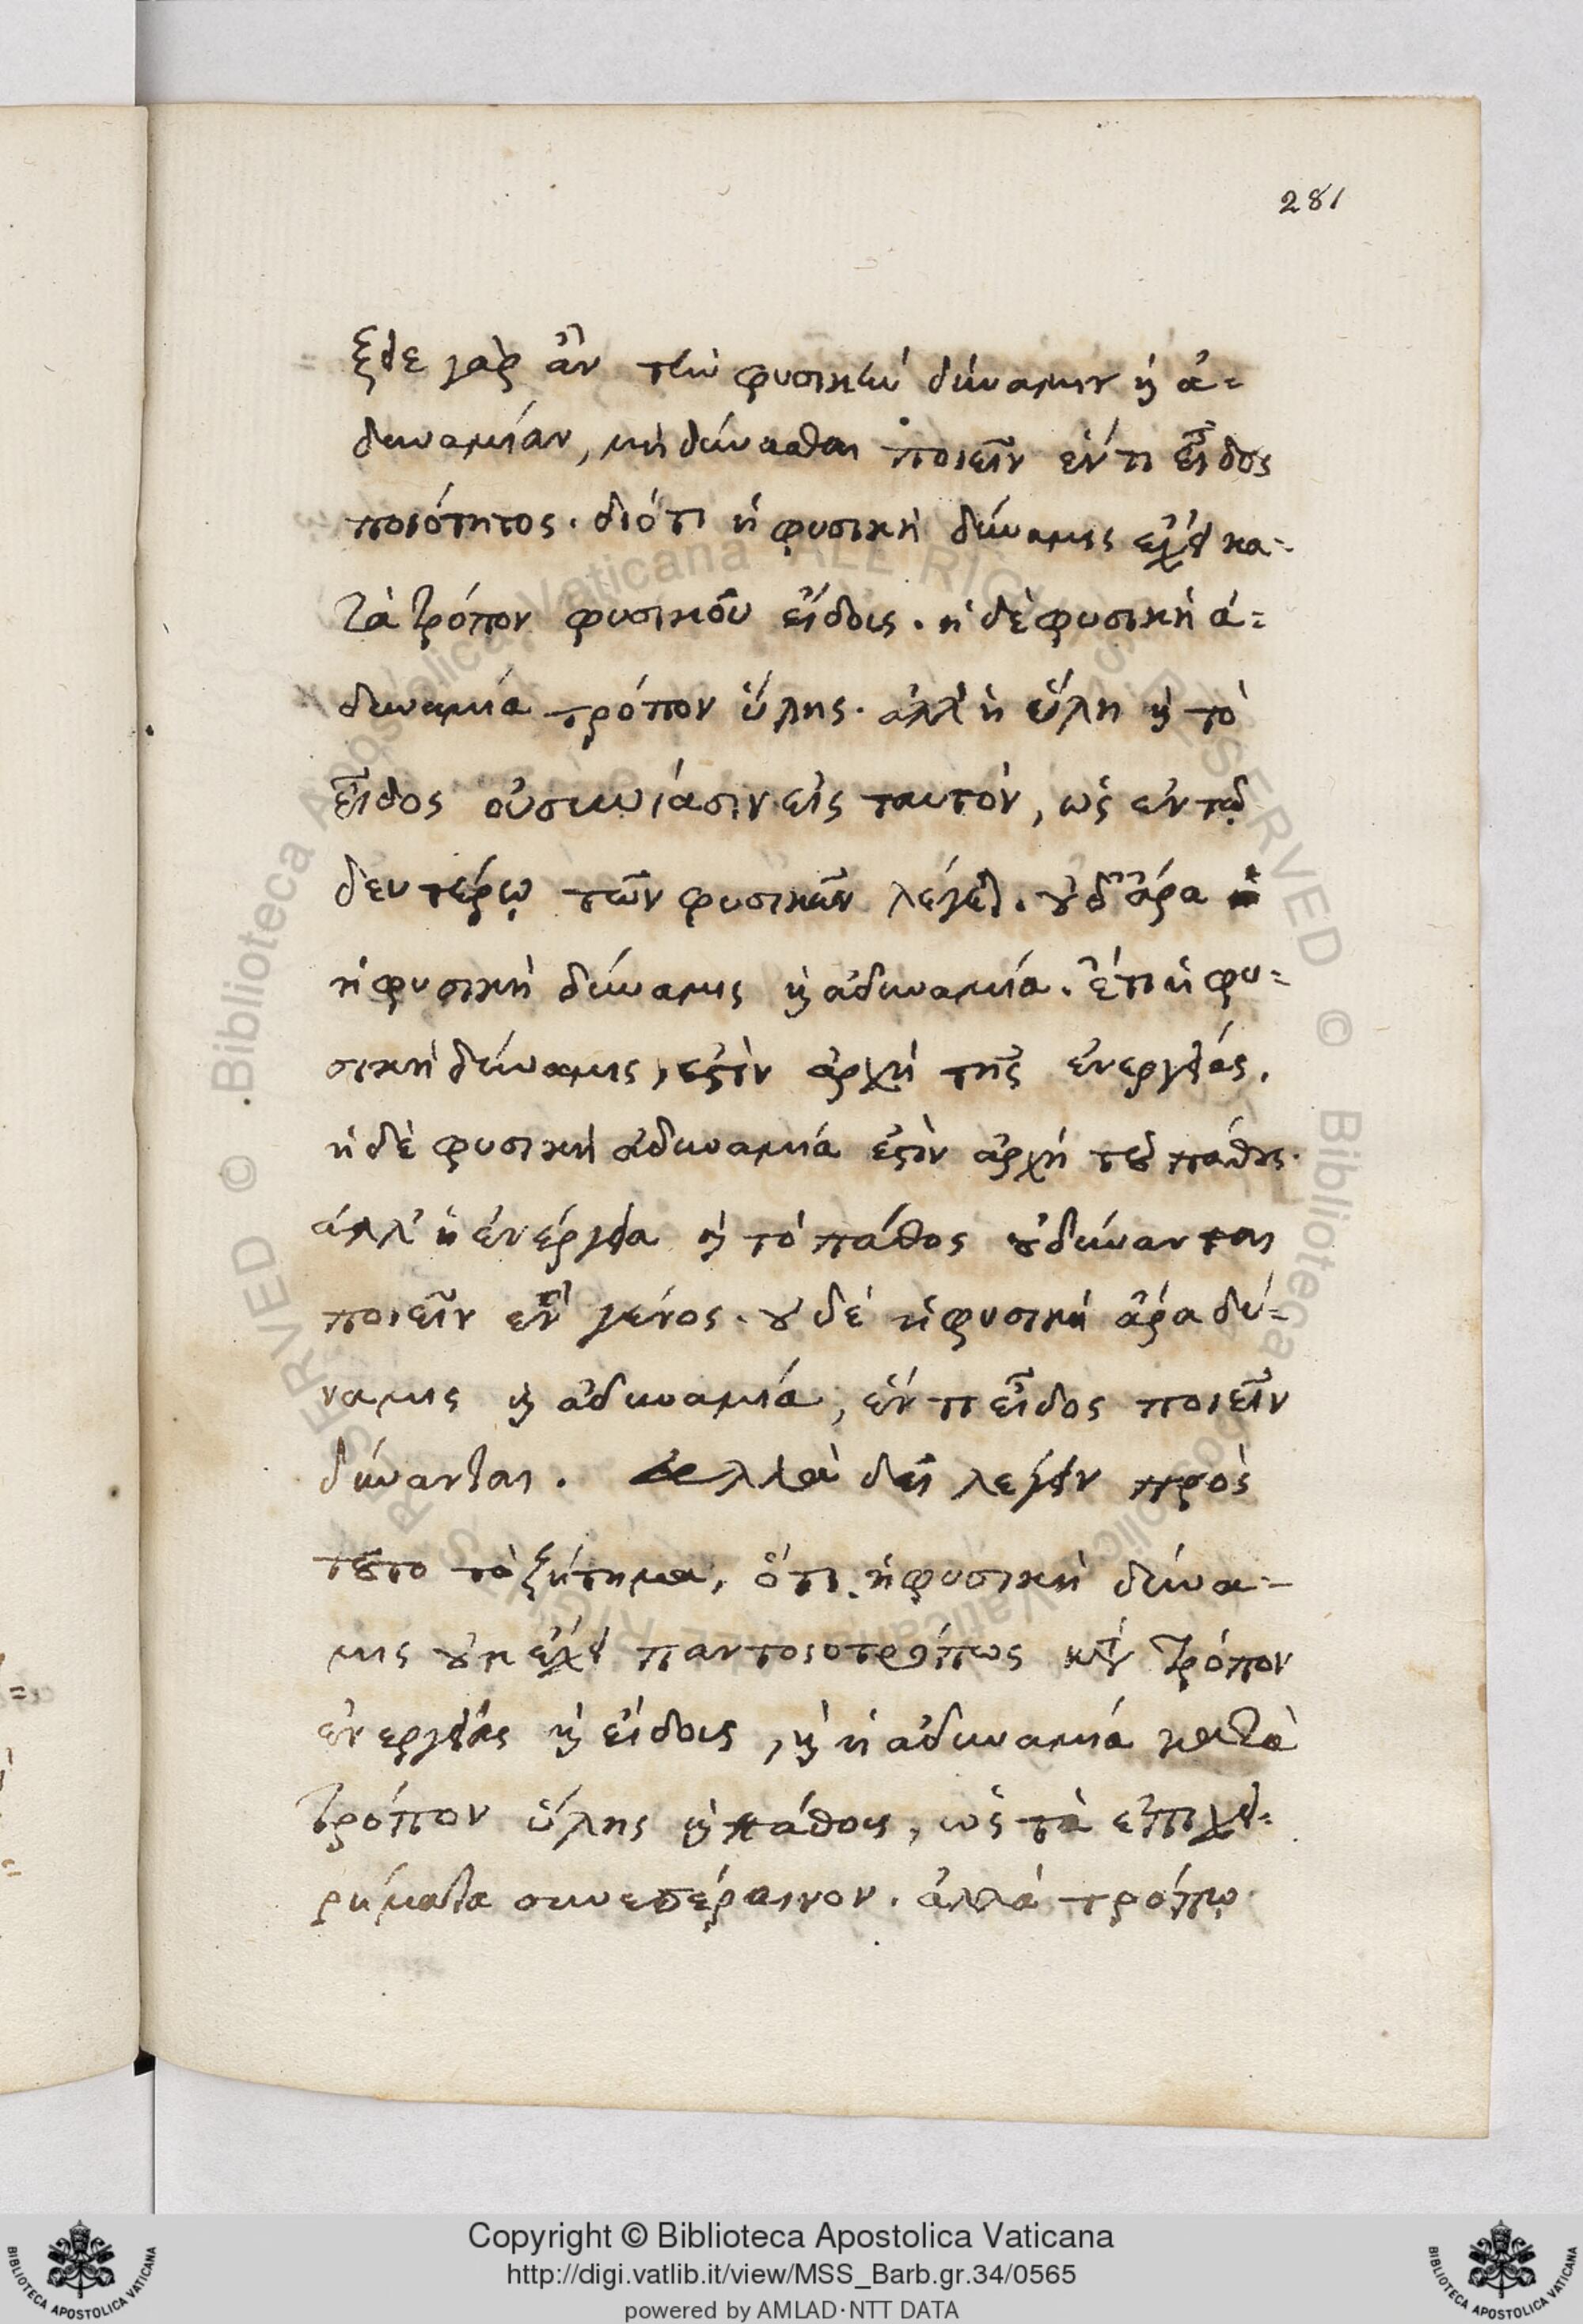 281
ξειε γὰρ ἂν τὴν φυσικὴν δύναμιν καὶ ἀ=
δυναμίαν, μὴ δύνασθαι ποιεῖν ἕν τι εἶδος
ποιότητος. διότι ἡ φυσικὴ δύναμις ἔχει κα=
τὰ τρόπον φυσικοῦ εἴδους. ἡ δὲ φυσικὴ ἀ=
δυναμία τρόπον ὕλης. ἀλλ' ἡ ὕλη καὶ τὸ
εἶδος οὐ συνιάσιν εἰς ταυτόν, ὡς ἐν τῷ
δευτέρῳ τῶν φυσικῶν λέγει. οὐδ' ἄρα
ἡ φυσικὴ δύναμις καὶ ἀδυναμία. ἔτι ἡ φυ=
σικὴ δύναμις, ἐστὶν ἀρχὴ τῆς ἐνεργείας.
ἡ δὲ φυσικὴ ἀδυναμία ἐστὶν ἀρχὴ τοῦ πάθους.
ἀλλ' ἡ ἐνέργεια καὶ τὸ πάθος οὐ δύνανται
ποιεῖν ἕν τι γένος. οὐδὲ ἡ φυσικὴ ἄρα δύ=
ναμις καὶ ἀδυναμία, ἕν τι εἶδος ποιεῖν
δύνανται. ἀλλὰ δεῖ λέγειν πρὸς
τοῦτο τὸ ζήτημα, ὅτι ἡ φυσικὴ δύνα=
μις οὐκ ἔχει παντοιοτρόπως κατὰ τρόπον
ἐνεργείας καὶ εἴδους, καὶ ἡ ἀδυναμία κατὰ
τρόπον ὕλης καὶ πάθους, ὡς τὰ ἐπιχει=
ρήματα συνεπέραινον. ἀλλὰ τρόπῳ
Copyright © Biblioteca Apostolica Vaticana
http://digi.vatlib.it/view/MSS_Barb.gr.34/0565
powered by AMLAD·NTT DATA